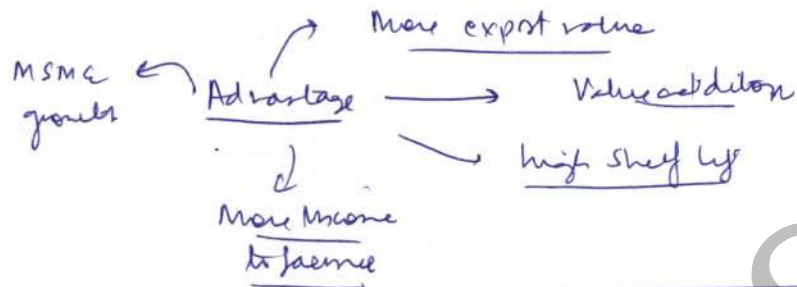 More export value
MSME
growth
Advantage
Value addition
high shelf life
More Income
to farmer